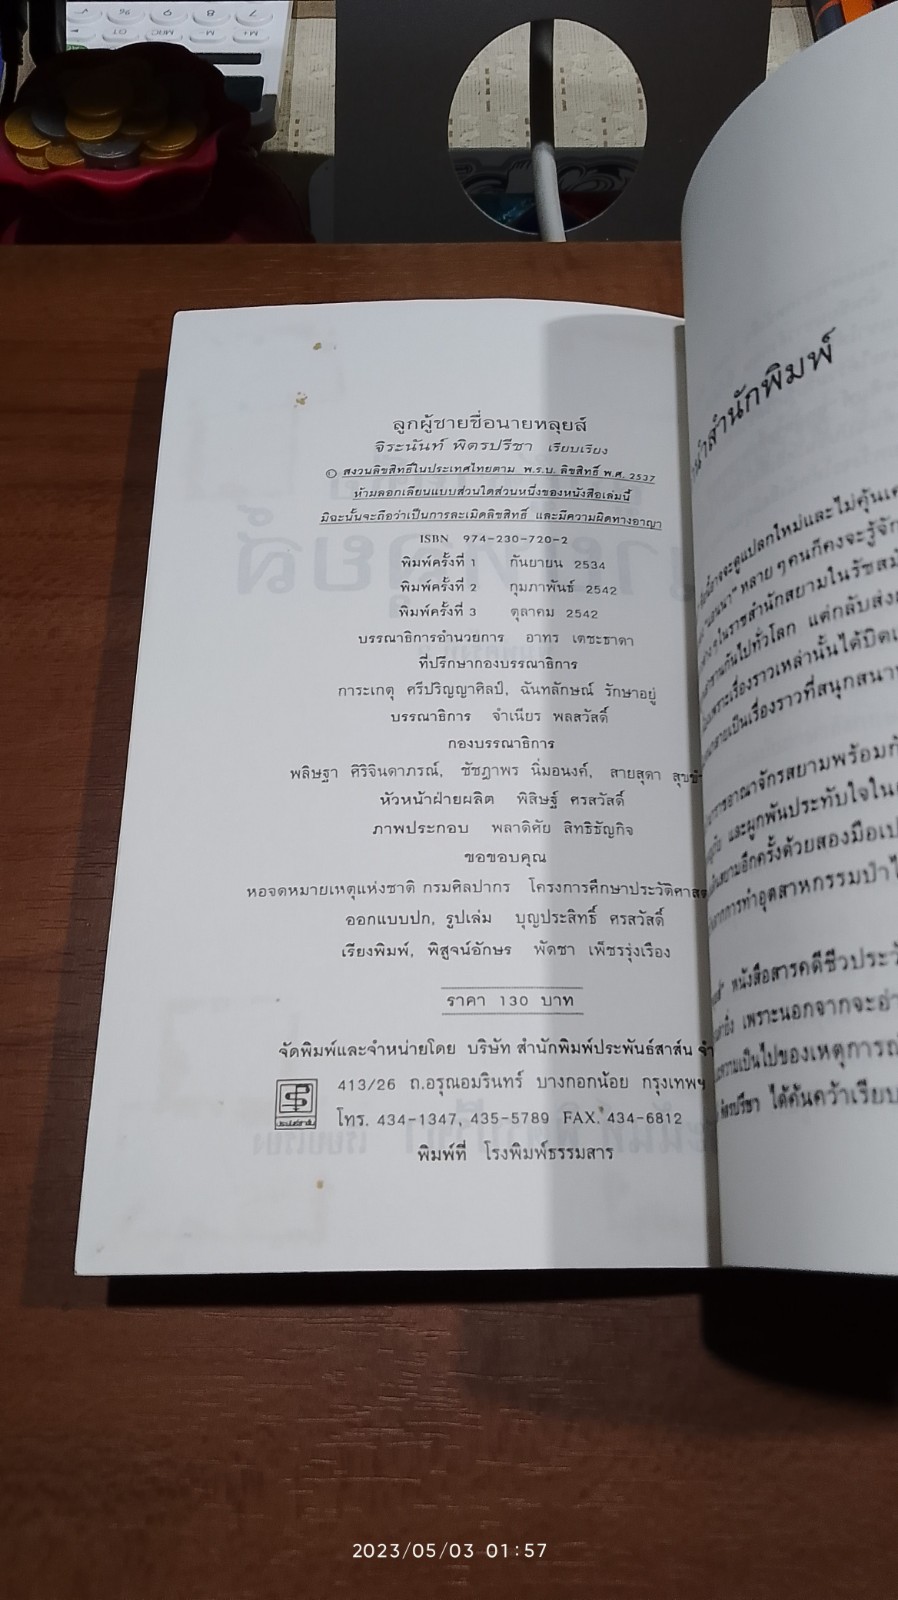 ลูกผู้ชายชื่อนายหลุยส์
จิระนันท์ พิตรปรีชา เรียบเรียง
© สงวนลิขสิทธิ์ในประเทศไทยตาม พ.ร.บ. ลิขสิทธิ์ พ.ศ. 2537
ห้ามลอกเลียนแบบส่วนใดส่วนหนึ่งของหนังสือเล่มนี้
มิฉะนั้นจะถือว่าเป็นการละเมิดลิขสิทธิ์ และมีความผิดทางอาญา
ISBN 974-230-720-2
พิมพ์ครั้งที่ 1 กันยายน 2534
พิมพ์ครั้งที่ 2 กุมภาพันธ์ 2542
พิมพ์ครั้งที่ 3 ตุลาคม 2542
บรรณาธิการอำนวยการ อาทร เตชะธาดา
ที่ปรึกษากองบรรณาธิการ
การะเกตุ ศรีปริญญาศิลป์, ฉันทลักษณ์ รักษาอยู่
บรรณาธิการ จำเนียร พลสวัสดิ์
กองบรรณาธิการ
พลิษฐา ศิริจินดาภรณ์, ชัชฎาพร นิ่มอนงค์, สายสุดา
หัวหน้าฝ่ายผลิต พิสิษฐ์ ศรสวัสดิ์
ภาพประกอบ พลาดิศัย สิทธิธัญกิจ
ขอขอบคุณ
หอจดหมายเหตุแห่งชาติ กรมศิลปากร โครงการศึกษาประวัติศาสต
ออกแบบปก, รูปเล่ม บุญประสิทธิ์ ศรสวัสดิ์
เรียงพิมพ์, พิสูจน์อักษร พัดชา เพ็ชรรุ่งเรือง
ราคา 130 บาท
จัดพิมพ์และจำหน่ายโดย บริษัท สำนักพิมพ์ประพันธ์สาส์น จำ
413/26 ถ.อรุณอมรินทร์ บางกอกน้อย กรุงเทพฯ
โทร. 434-1347, 435-5789 FAX. 434-6812
พิมพ์ที่ โรงพิมพ์ธรรมสาร
นำสำนักพิมพ์
นี้อาจจะดูแปลกใหม่และไม่คุ้นเค
"แอนนา" หลาย ๆ คนก็คงจะรู้จัก
ต่าง ๆ ในราชสำนักสยามในรัชสมั
กันไปทั่วโลก แต่กลับส่งผ
เพราะเรื่องราวเหล่านั้นได้บิดเ
กลายเป็นเรื่องราวที่สนุกสนาน
ราชอาณาจักรสยามพร้อมกั
และผูกพันประทับใจใน
สยามอีกครั้งด้วยสองมือเป
จากการทำอุตสาหกรรมป่าไ
หนังสือสารคดีชีวประวั
ยิ่ง เพราะนอกจากจะอ่า
ความเป็นไปของเหตุการณ
พิตรปรีชา ได้ค้นคว้าเรียบ
2023/05/03 01:57